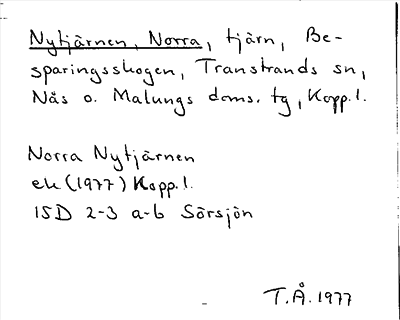 Nytjärnen, Norra, tjärn, Be-
sparingsskogen, Transtrands sn,
Nås o. Malungs doms. tg, Kopp.l.
Norra Nytjärnen
ek (1977) Kopp.l.
15D 2-3 a-b Sörsjön
T.Å. 1977